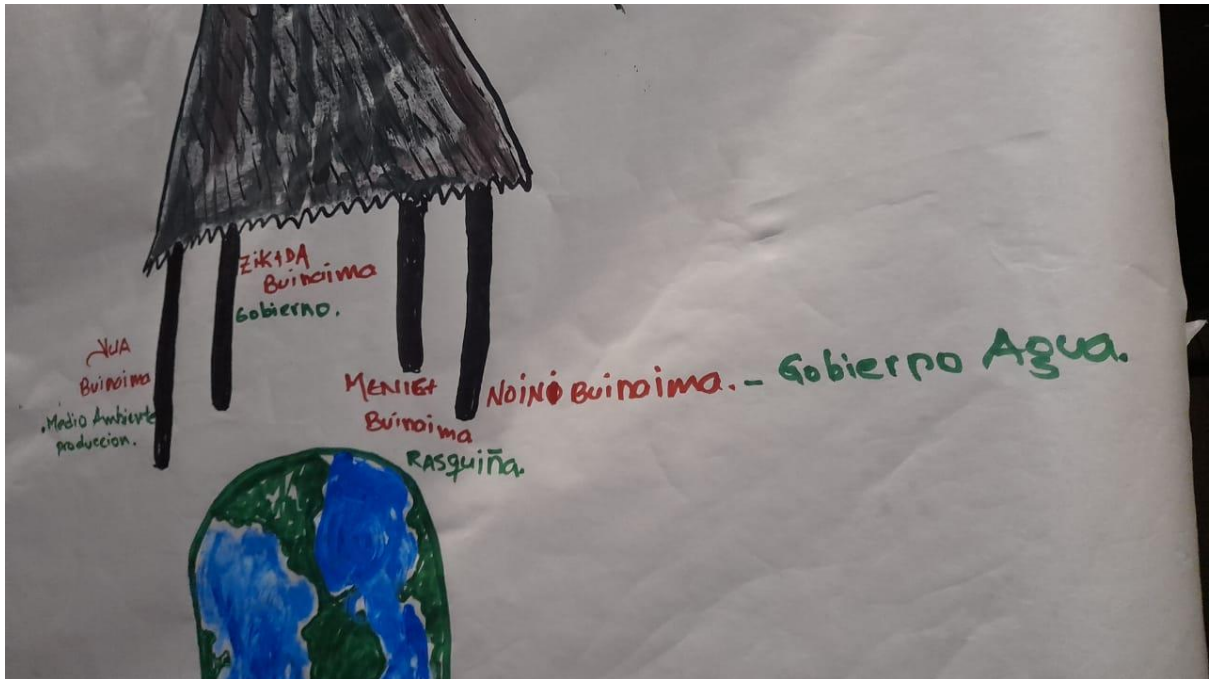 ZIKɨDA
Buinaima
Gobierno.
YUA
Buinaima
.Medio Ambiente
produccion.
MENIGɨ
Buinaima
RASquiña.
NOINɨ Buinaima. - Gobierno Agua.